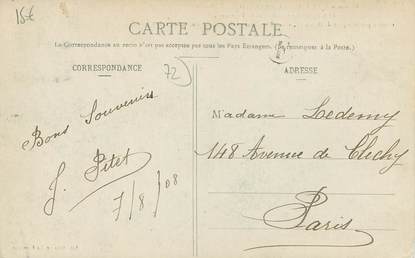 15€
CARTE POSTALE
La Correspondance au recto n'est pas acceptée par tous les Pays Étrangers. (Se renseigner à la Poste.)
CORRESPONDANCE
72
ADRESSE
Bons Souvenirs
J. Petet
7/8/08
Madame Ledemy
148 Avenue de Clichy
Paris